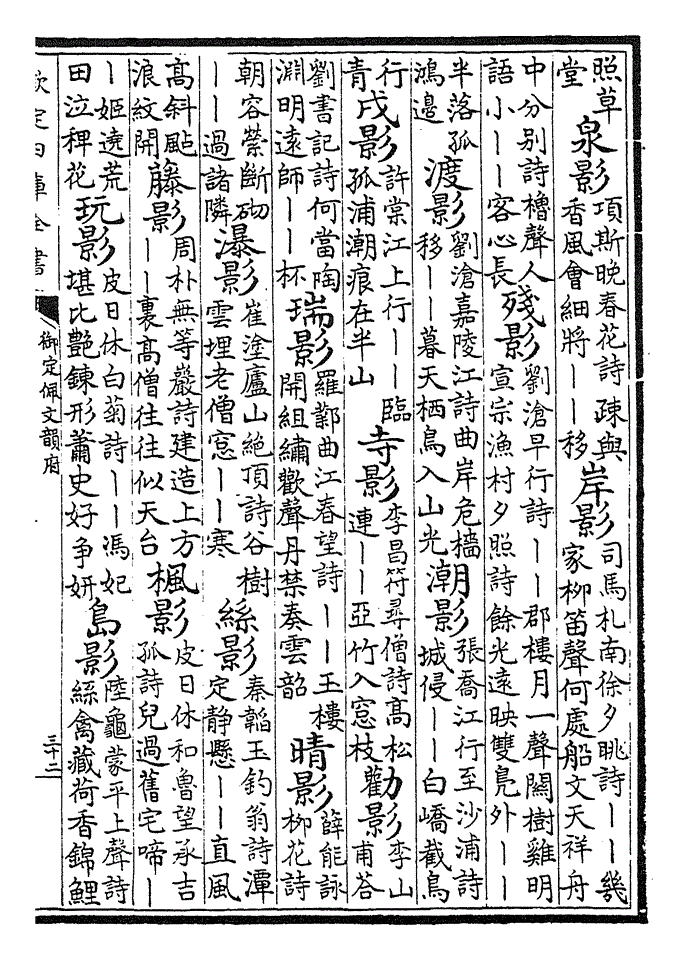 照草堂泉影項斯晚春花詩疎與香風會細將——移岸影司馬札南徐夕眺詩——幾家柳笛聲何處船文天祥舟
中分别詩櫓聲人語小——客心長殘影劉滄早行詩——郡樓月一聲闗樹雞明宣宗漁村夕照詩餘光遠映雙鳧外——
半落孤鴻邊渡影劉滄嘉陵江詩曲岸危檣移——暮天栖鳥入山光潮影張喬江行至沙浦詩城侵——白嶠截鳥
行青戍影許棠江上行——臨孤浦潮痕在半山寺影李昌符尋僧詩髙松連——亞竹入窓枝勸影李山甫荅
劉書記詩何當陶淵明遠師——杯瑞影羅鄴曲江春望詩——王樓開組繡歡聲丹禁奏雲韶晴影薛能詠柳花詩
朝容縈斷砌——過諸隣瀑影崔塗廬山絶頂詩谷樹雲埋老僧窓——寒絲影秦韜玉釣翁詩潭定静懸——直風
髙斜颭浪紋開藤影周朴無等巖詩建造上方——裏髙僧往往似天台楓影皮日休和魯望承吉孤詩兒過舊宅啼——
——姬遶荒田泣稗花玩影皮日休白菊詩——馮妃堪比艶錬形蕭史好争妍島影陸龜蒙平上聲詩絲禽藏荷香錦鯉
欽定四庫全書
御定佩文韻府
三十二